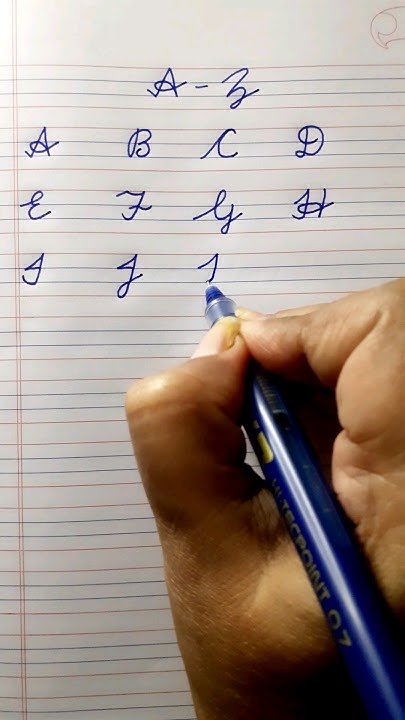 A - Z
A B C D
E F G H
I J
HI-TECPOINT 0.7